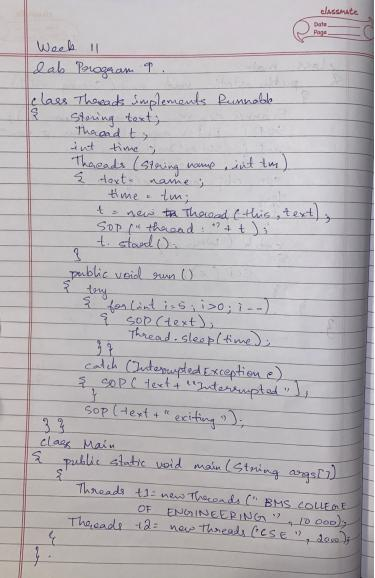 classmate
Date
Page
Week 11
Lab Program 9.
class Threads implements Runnable
{ String text;
Thread t;
int time;
Threads (String name, int tm)
{ text = name;
time = tm;
t = new Thread (this, text);
SOP ("thread : " + t);
t. start();
}
public void run ()
{ try
{ for (int i=5; i>0; i--)
{ SOP (text);
Thread.sleep(time);
}}
catch (InterruptedException e)
{ SOP ( text + "Interrupted");
}
SOP (text + " exiting");
}}
class Main
{ public static void main (String args[])
{
Threads t1 = new Threads (" BMS COLLEGE
OF ENGINEERING ", 10 000);
Threads t2 = new Threads ("CSE ", 2000);
}
}.